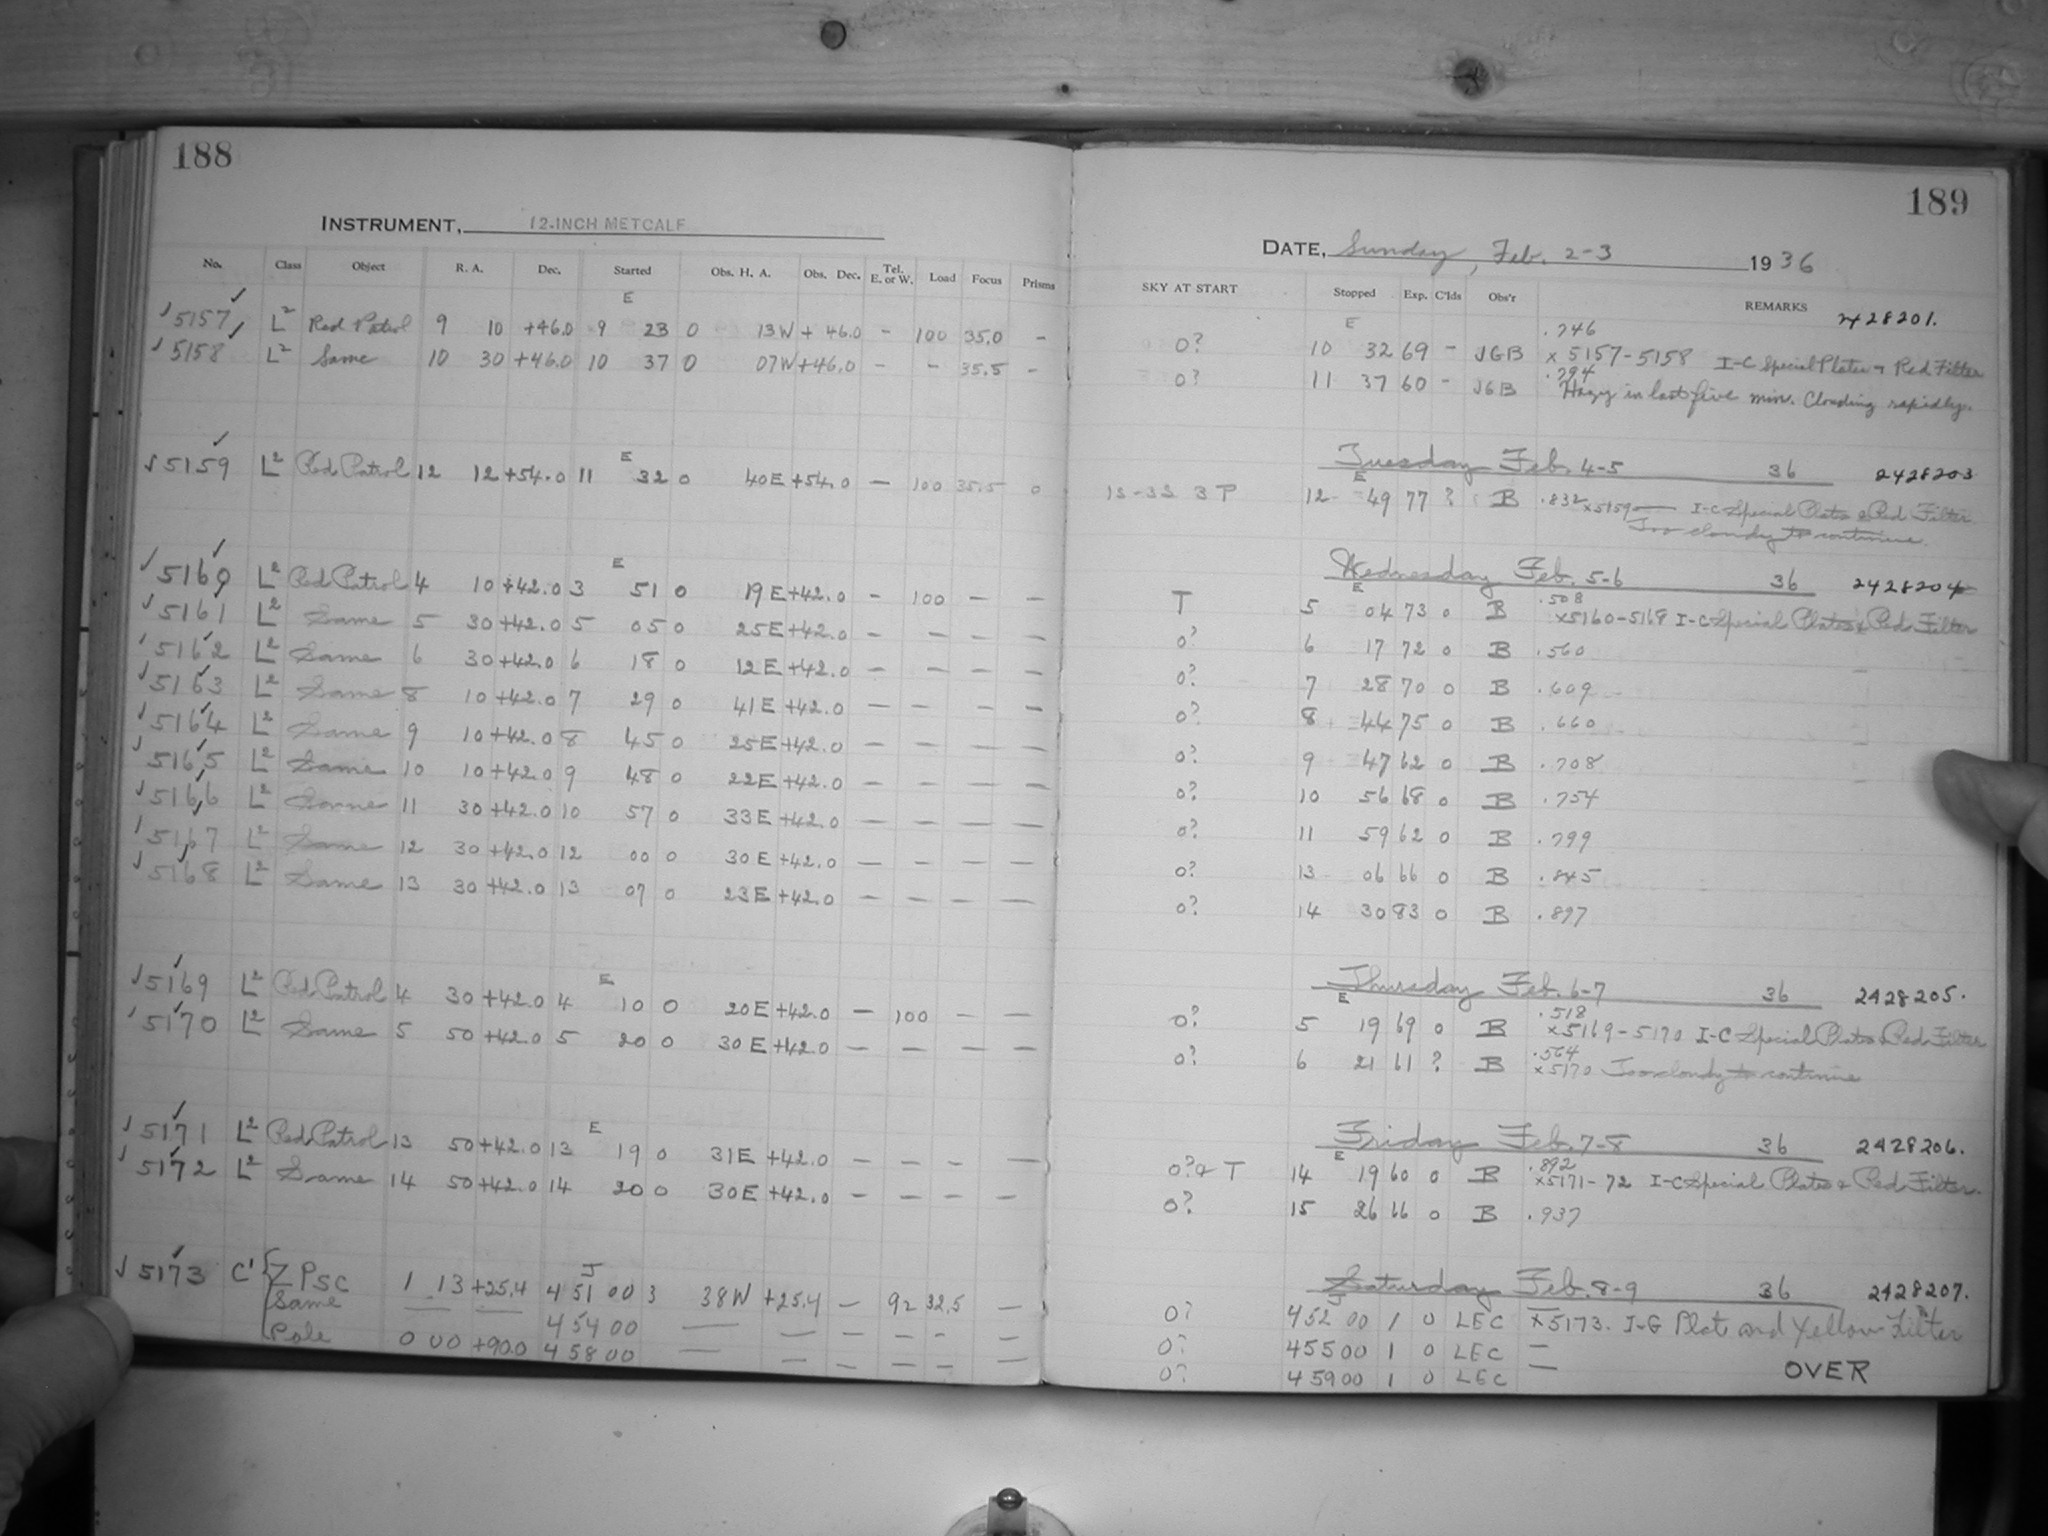 188
INSTRUMENT, 12-INCH METCALF
No. Class Object R. A. Dec. Started Obs. H. A. Obs. Dec. Tel. E. or W. Load Focus Prisms
E
5157 L² Red Patrol 9 10 +46.0 9 23 0 13W +46.0 - 100 35.0 -
5158 L² Same 10 30 +46.0 10 37 0 07W +46.0 - - 35.5 -
E
5159 L² Red Patrol 12 12 +54.0 11 32 0 40E +54.0 - 100 35.5 0
E
5160 L² Red Patrol 4 10 +42.0 3 51 0 19E +42.0 - 100 - -
5161 L² Same 5 30 +42.0 5 05 0 25E +42.0 - - - -
5162 L² Same 6 30 +42.0 6 18 0 12E +42.0 - - - -
5163 L² Same 8 10 +42.0 7 29 0 41E +42.0 - - - -
5164 L² Same 9 10 +42.0 8 45 0 25E +42.0 - - - -
5165 L² Same 10 10 +42.0 9 48 0 22E +42.0 - - - -
5166 L² Same 11 30 +42.0 10 57 0 33E +42.0 - - - -
5167 L² Same 12 30 +42.0 12 00 0 30E +42.0 - - - -
5168 L² Same 13 30 +42.0 13 07 0 23E +42.0 - - - -
E
5169 L² Red Patrol 4 30 +42.0 4 10 0 20E +42.0 - 100 - -
5170 L² Same 5 50 +42.0 5 20 0 30E +42.0 - - - -
E
5171 L² Red Patrol 13 50 +42.0 13 19 0 31E +42.0 - - - -
5172 L² Same 14 50 +42.0 14 20 0 30E +42.0 - - - -
J
5173 C' Z Psc 1 13 +25.4 4 51 00 3 38W +25.4 - 92 32.5 -
Same — — 4 54 00 — — - - - -
Pole 0 00 +90.0 4 58 00 — — - - - -
189
DATE, Sunday, Feb. 2-3 1936
SKY AT START Stopped Exp. C'lds Obs'r REMARKS 2428201.
E .746
0? 10 32 69 - JGB x 5157-5158 I-C Special Plates + Red Filter
.794
0? 11 37 60 - JGB Hazy in last five min. Clouding rapidly.
Tuesday Feb. 4-5 36 2428203
E
1S-3S 3P 12 49 77 ? B .832 x5159 — I-C Special Plate & Red Filter
Too cloudy to continue.
Wednesday Feb. 5-6 36 2428204
E .508
T 5 04 73 0 B x5160-5168 I-C Special Plates & Red Filter
0? 6 17 72 0 B .560
0? 7 28 70 0 B .609
0? 8 44 75 0 B .660
0? 9 47 62 0 B .708
0? 10 56 68 0 B .754
0? 11 59 62 0 B .799
0? 13 06 66 0 B .845
0? 14 30 83 0 B .897
Thursday Feb. 6-7 36 2428205.
E .518
0? 5 19 69 0 B x5169-5170 I-C Special Plates & Red Filter
.564
0? 6 21 61 ? B x5170 Too cloudy to continue
Friday Feb. 7-8 36 2428206.
E .892
0? & T 14 19 60 0 B x5171-72 I-C Special Plates & Red Filter.
0? 15 26 66 0 B .937
Saturday Feb. 8-9 36 2428207.
J
0? 4 52 00 1 0 LEC x5173. I-G Plate and Yellow Filter
0? 4 55 00 1 0 LEC —
0? 4 59 00 1 0 LEC — OVER